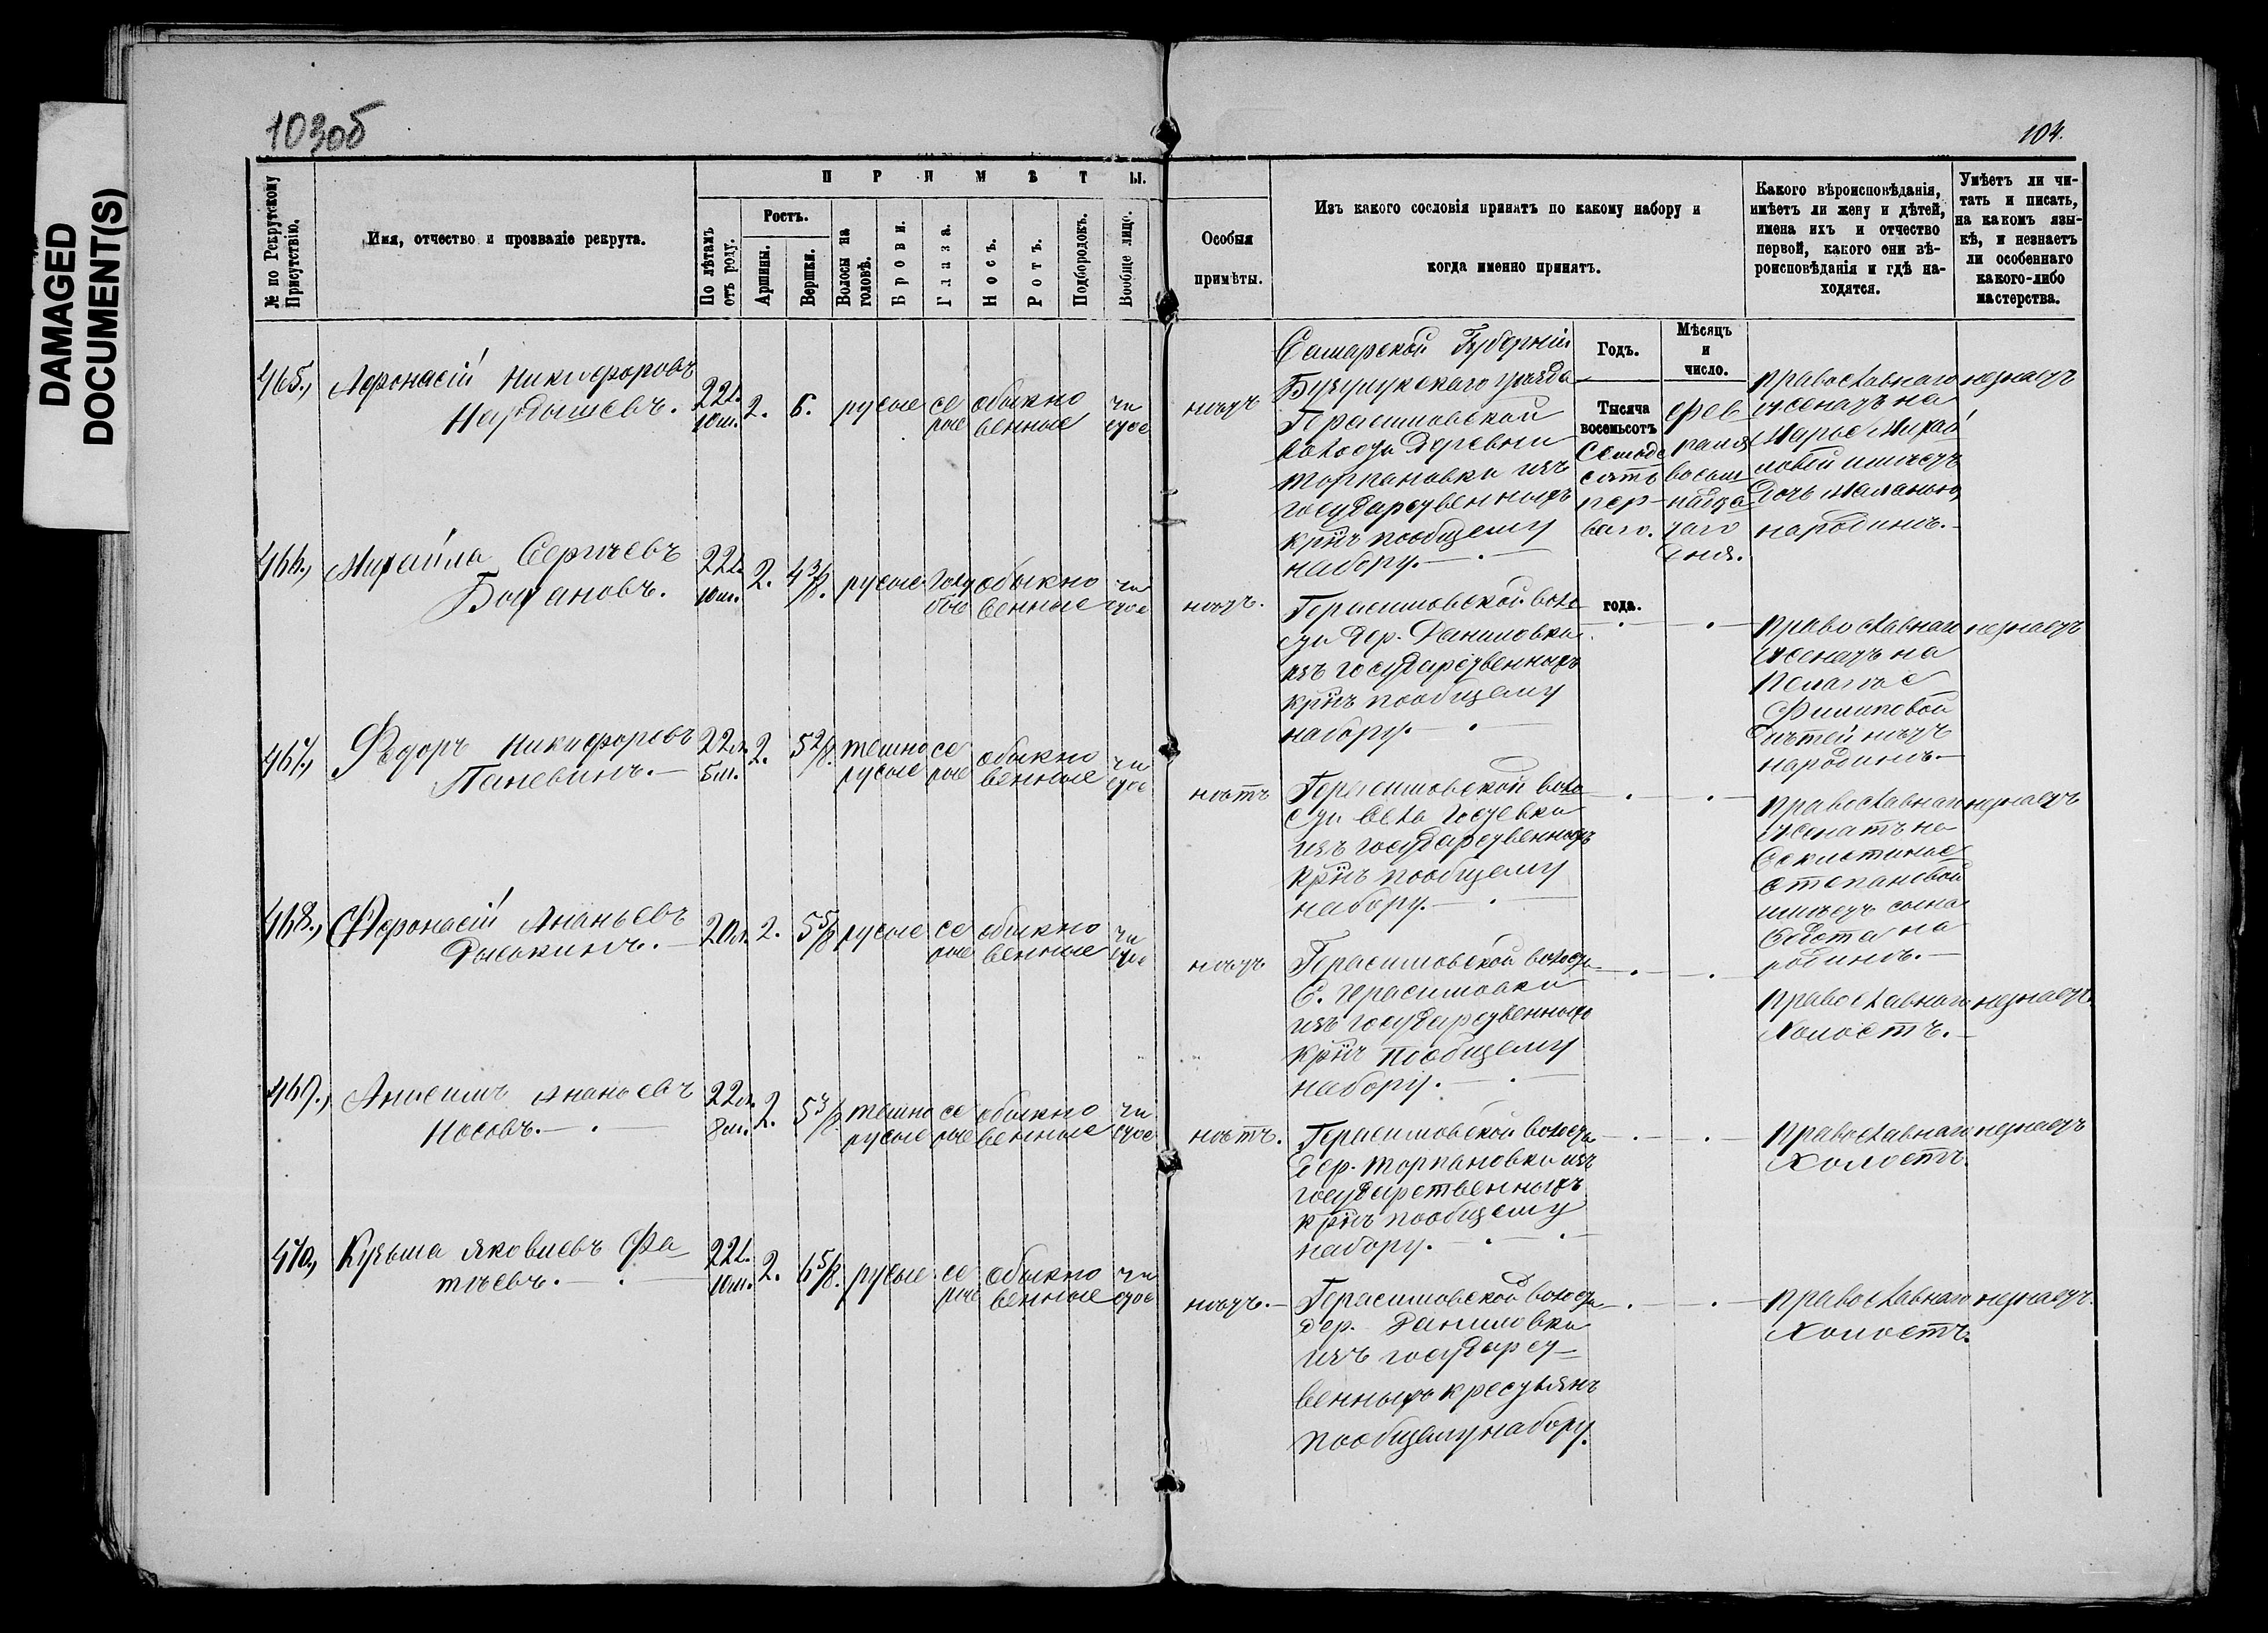 DAMAGED
DOCUMENT(S)
103об
104.
№ по Рекрутскому
Присутствію.
Имя, отчество и прозваніе рекрута.
ПРИМѢТЫ.
По лѣтамъ
отъ роду.
Ростъ.
Аршины.
Вершки.
Волосы на
головѣ.
Брови.
Глаза.
Носъ.
Ротъ.
Подбородокъ.
Вообще лицо.
Особыя
примѣты.
Изъ какого сословія принятъ по какому набору и
когда именно принятъ.
Какого вѣроисповѣданія,
имѣетъ ли жену и дѣтей,
имена ихъ и отчество
первой, какого они вѣ-
роисповѣданія и гдѣ на-
ходятся.
Умѣетъ ли чи-
тать и писать,
на какомъ язы-
кѣ, и незнаетъ
ли особеннаго
какого-либо
мастерства.
Годъ.
Мѣсяцъ
и
число.
465., Афонасій Никифоровъ
22л.
10м.
2. 6. русые се
рые
обыкно
венные
чи
стое
нѣтъ
Самарской Губерніи
Бузулукскаго уѣзда
Герасимовской
волости Деревни
Торпановки изъ
государственныхъ
крнъ пообщему
набору.
Тысяча
восемьсотъ
Семьде
сятъ
пер-
ваго.
года.
Фев
раля
восем
надца
таго
дня.
православнаго
женатъ на
Марье Михай
ловой имѣетъ
дочь Маланью,
народинѣ.
незнаетъ
466., Михайла Сергѣевъ
Боцановъ.
22л.
10м.
2. 4 3/8. русые голу
бые
обыкно
венные
чи
стое
нѣтъ.
Герасимовской воло
сти дер. Даниловки
изъ государственныхъ
крнъ пообщему
набору.
православнаго
женатъ на
Пелагье
Филиповой
дѣтей нѣтъ
народинѣ.
незнаетъ
467., Ѳедоръ Никифоровъ
Паневинъ.
22л.
5м.
2. 5 2/8. темно
русые
се
рые
обыкно
венные
чи
стое
нѣтъ
Герасимовской воло
сти села
изъ государственныхъ
крнъ пообщему
набору.
православнаго
женатъ на
Степановой
имѣетъ сына
на
родинѣ.
незнаетъ
468., Афонасій Ананьевъ
20л. 2. 5 5/8 русые се
рые
обыкно
венные
чи
стое
нѣтъ
Герасимовской волости
С. Герасимовки
изъ государственныхъ
крнъ пообщему
набору.
православнаго
Холостъ.
незнаетъ.
469., Анисимъ Ананьевъ
Носовъ.
22л.
8м.
2. 5 3/8. темно
русые
се
рые
обыкно
венные
чи
стое
нѣтъ.
Герасимовской волости
дер. Торпановки изъ
государственныхъ
крнъ пообщему
набору.
православнаго
Холостъ.
незнаетъ
470., Кузьма Яковлевъ Фа
тѣевъ.
22л.
10м.
2. 6 5/8. русые се
рые
обыкно
венные
чи
стое
нѣтъ.
Герасимовской волости
дер. Даниловки
изъ государст
венныхъ крестьянъ
пообщему набору.
православнаго
Холостъ.
незнаетъ.